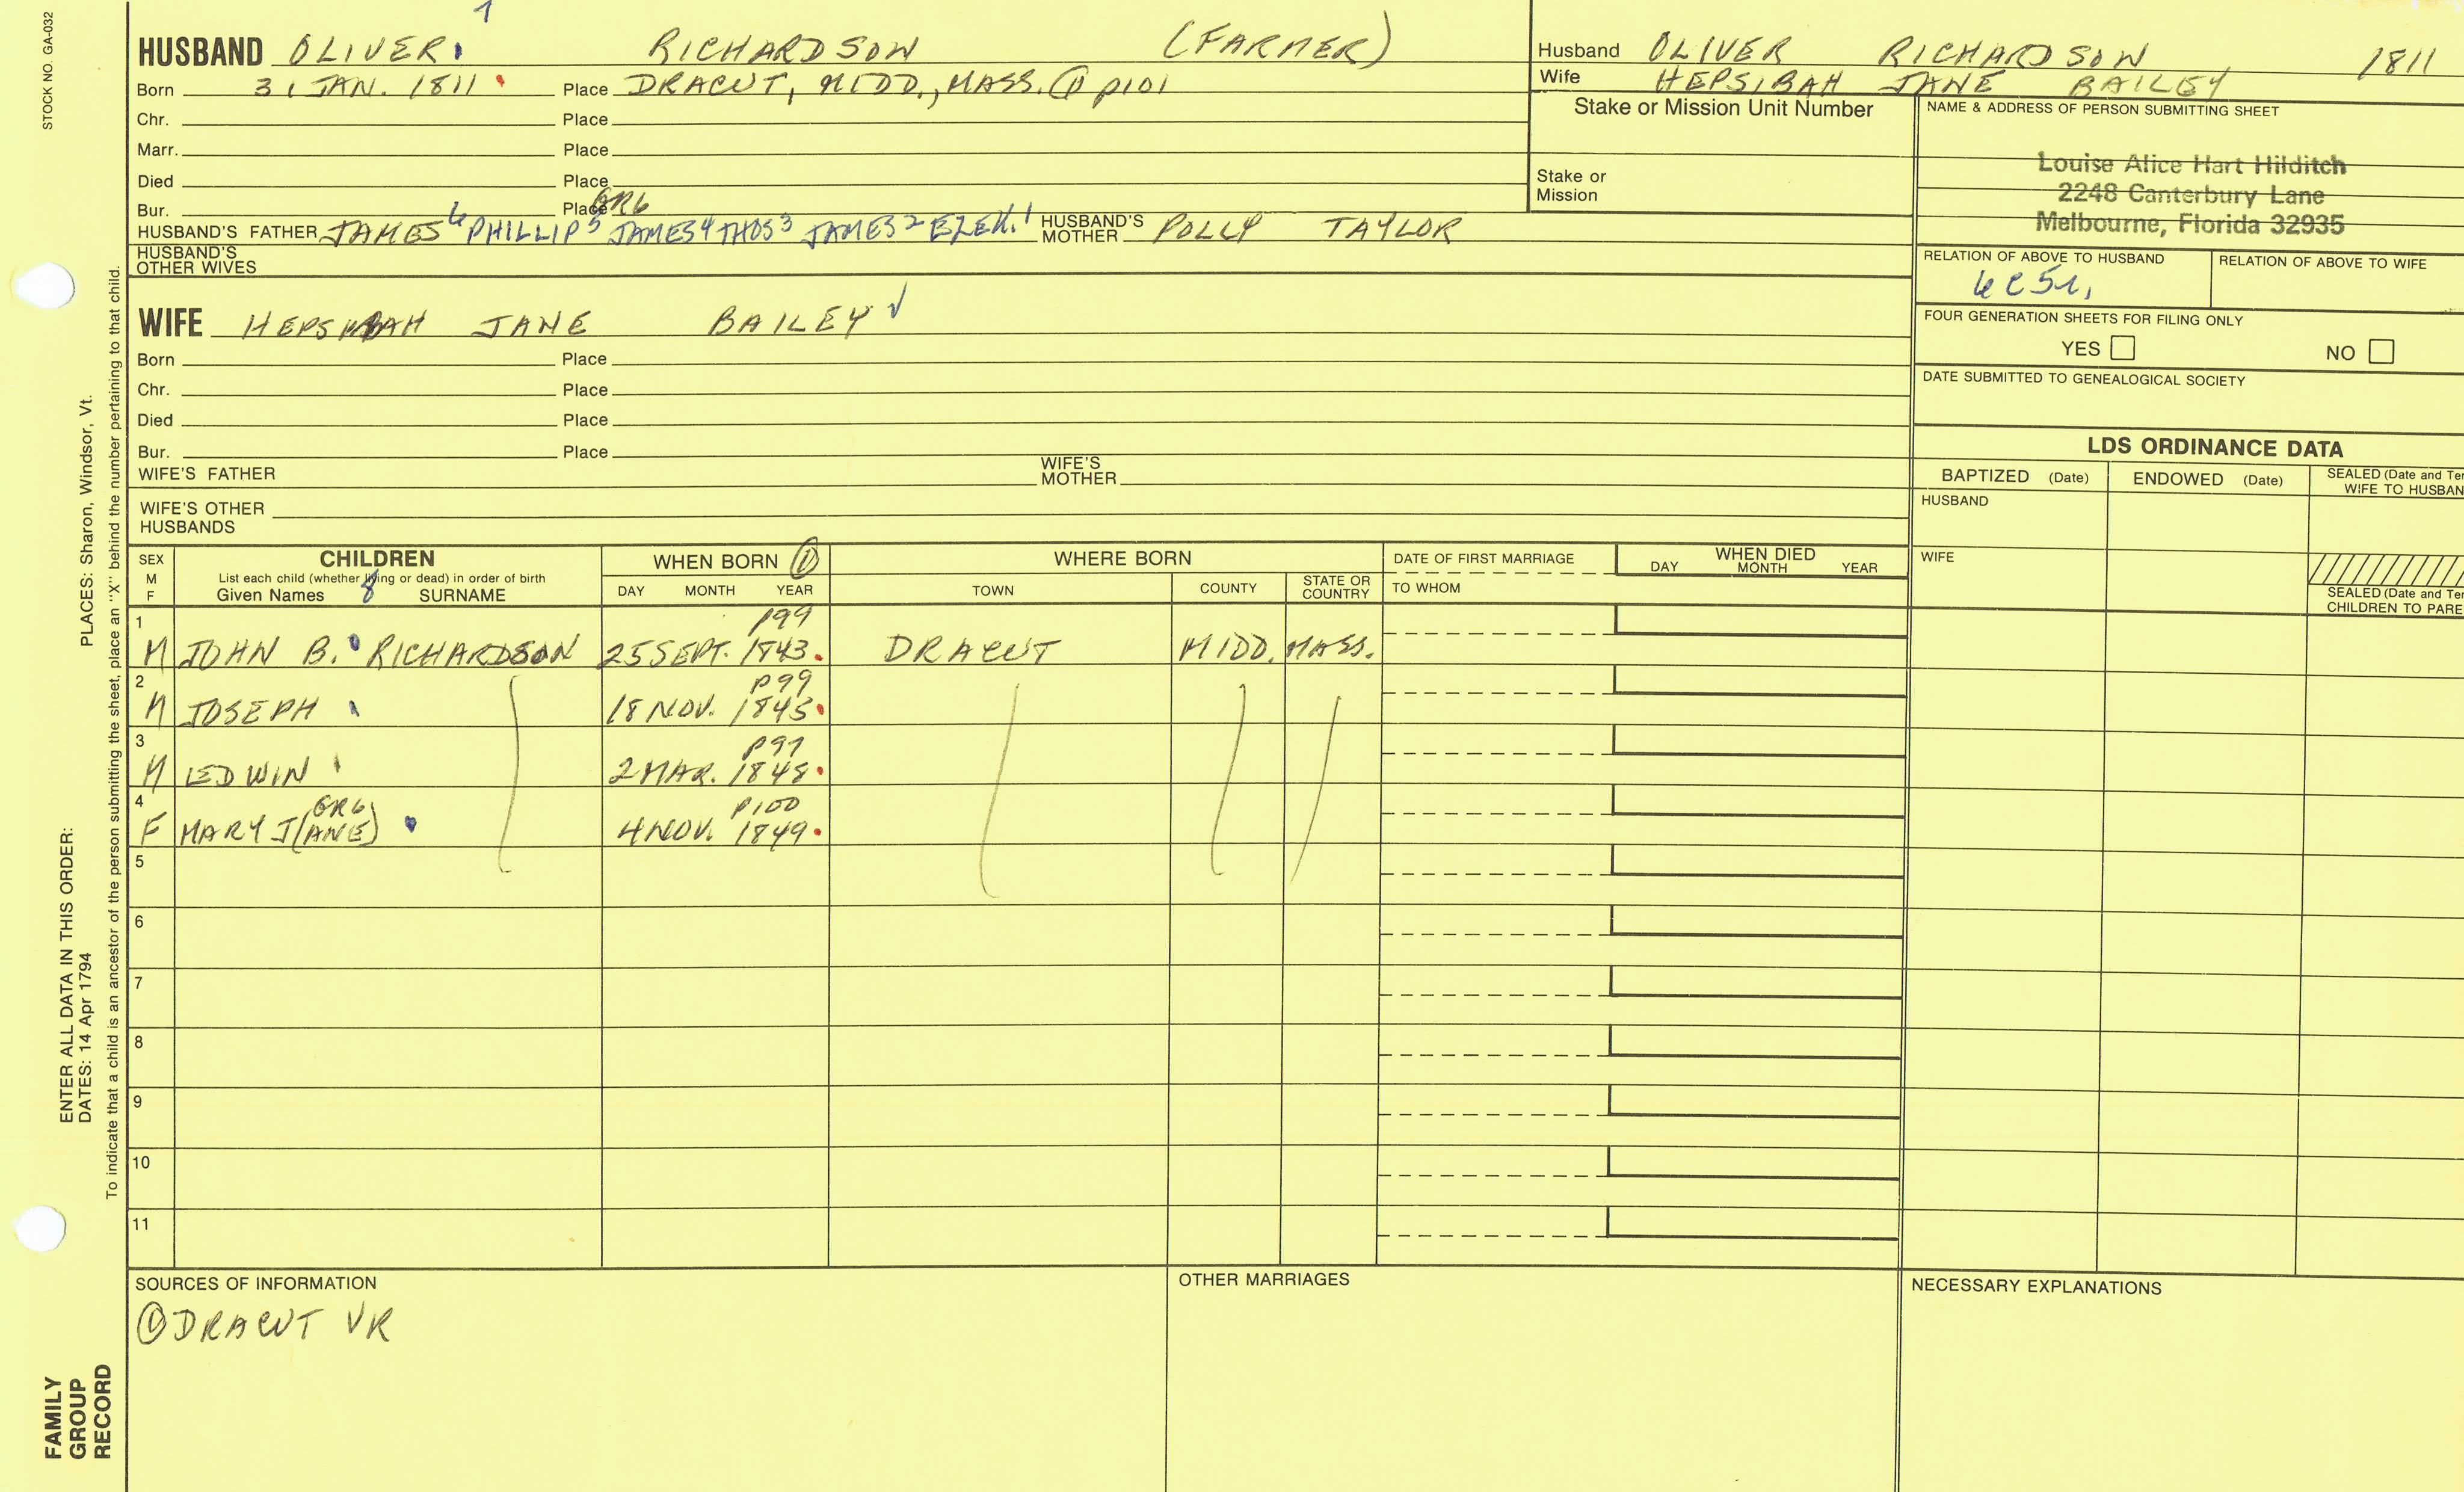 STOCK NO. GA-032
PLACES: Sharon, Windsor, Vt.
ENTER ALL DATA IN THIS ORDER:
DATES: 14 Apr 1794
To indicate that a child is an ancestor of the person submitting the sheet, place an "X" behind the number pertaining to that child.
FAMILY
GROUP
RECORD
HUSBAND OLIVER RICHARDSON (FARMER)
Born 31 JAN. 1811 Place DRACUT, MIDD., MASS. ① p101
Chr. Place
Marr. Place
Died Place
Bur. Place GR6
HUSBAND'S FATHER JAMES6 PHILLIP5 JAMES4 THOS3 JAMES2 EZEK.1 HUSBAND'S MOTHER POLLY TAYLOR
HUSBAND'S
OTHER WIVES
WIFE HEPSIBAH JANE BAILEY √
Born Place
Chr. Place
Died Place
Bur. Place
WIFE'S FATHER WIFE'S MOTHER
WIFE'S OTHER
HUSBANDS
Husband OLIVER RICHARDSON 1811
Wife HEPSIBAH JANE BAILEY
Stake or Mission Unit Number
Stake or
Mission
NAME & ADDRESS OF PERSON SUBMITTING SHEET
Louise Alice Hart Hilditch
2248 Canterbury Lane
Melbourne, Florida 32935
RELATION OF ABOVE TO HUSBAND RELATION OF ABOVE TO WIFE
6C5r,
FOUR GENERATION SHEETS FOR FILING ONLY
YES NO
DATE SUBMITTED TO GENEALOGICAL SOCIETY
LDS ORDINANCE DATA
BAPTIZED (Date) ENDOWED (Date) SEALED (Date and Ter
WIFE TO HUSBAN
HUSBAND
WIFE
SEALED (Date and Ter
CHILDREN TO PARE
SEX
M
F
CHILDREN
List each child (whether living or dead) in order of birth
Given Names 8 SURNAME
WHEN BORN ①
DAY MONTH YEAR
WHERE BORN
TOWN COUNTY STATE OR COUNTRY
DATE OF FIRST MARRIAGE
TO WHOM
WHEN DIED
DAY MONTH YEAR
1 p99
M JOHN B. RICHARDSON 25 SEPT. 1843 DRACUT MIDD. MASS.
2 p99
M JOSEPH 18 NOV. 1845
3 p97
M EDWIN 2 MAR. 1848
4 GR6 p100
F MARY J(ANE) 4 NOV. 1849
5
6
7
8
9
10
11
SOURCES OF INFORMATION
① DRACUT VR
OTHER MARRIAGES
NECESSARY EXPLANATIONS